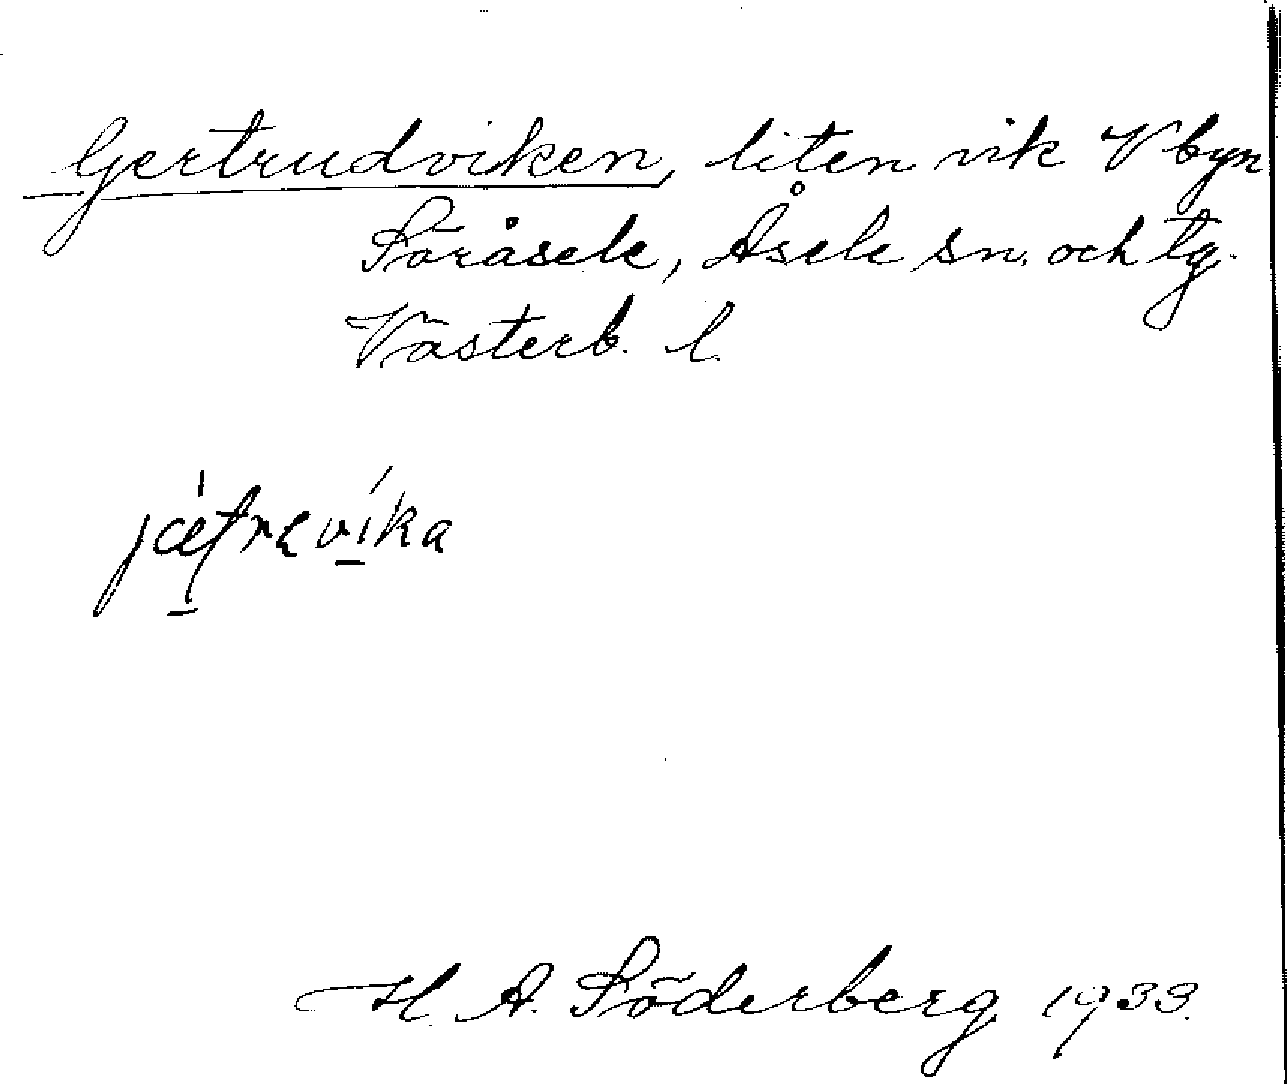 Gertrudviken, liten vik V byn
Söråsele, Åsele sn. och tg.
Västerb. l.
H. A. Söderberg 1933.